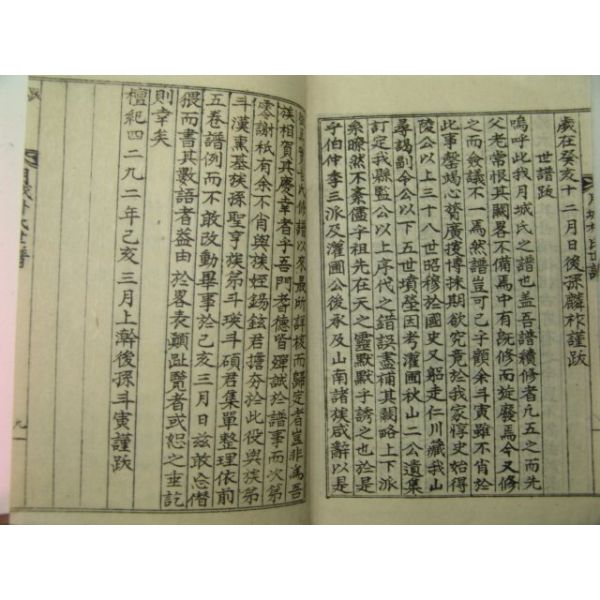 歲在癸亥十二月日後孫麟祚謹跋
世譜跋
嗚呼此我月城氏之譜也盖吾譜續修者凢五之而先
父老常恨其闕畧不備焉中有旣修而旋廢焉今又修
之而僉議不一焉然譜豈可已乎顧余斗寅雖不肖於
此事罄竭心膂廣援博採期欲究竟於我家惇史始得
陵公以上三十八世昭穆於國史又躬走仁川藏我山
尋謁副令公以下五世墳塋因考灌圃秋山二公遺集
訂定我縣監公以上序代之錯誤盡補其闕略上下派
系暸然不紊儘乎祖先在天之靈默默乎誘之也於是
乎伯仲季三派及灌圃公後承及山南諸族咸辭以是
族相賀其慶幸者乎吾門耆德皆殫誠於譜事而次第
零謝秖有余不肖與族姪錫鉉君擔夯於此役與族弟
斗漢熏基族孫聖亨族弟斗瑛斗碩君集單整理依前
五卷譜例而不敢改動畢事於己亥三月日玆敢忘僭
猥而書其數語者益由於畧表顚趾覽者或恕之圭訖
則幸矣
檀紀四二九二年己亥三月上澣後孫斗寅謹跋